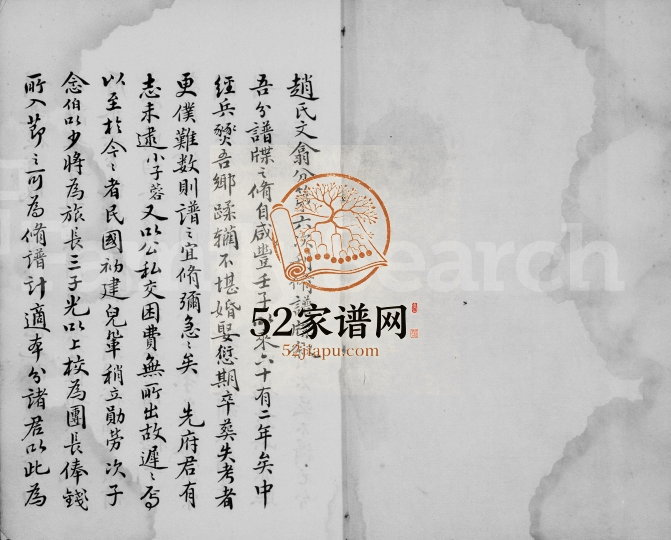 趙氏文翕分第六次
吾分譜牒之脩自咸豐壬子 來六十有二年矣中
經兵燹吾鄉蹂躪不堪婚娶愆期卒葬失考者
更僕難數則譜之宜脩彌急之矣 先府君有
志未逮小子蓉又以公私交困費無所出故遲之焉
以至於今之者民國初建兒輩稍立勛勞次子
念伯以少將為旅長三子光以上校為團長俸錢
所入節之可為脩譜計適本分諸君以此為
52家谱网
52jiapu.com
FamilySearch